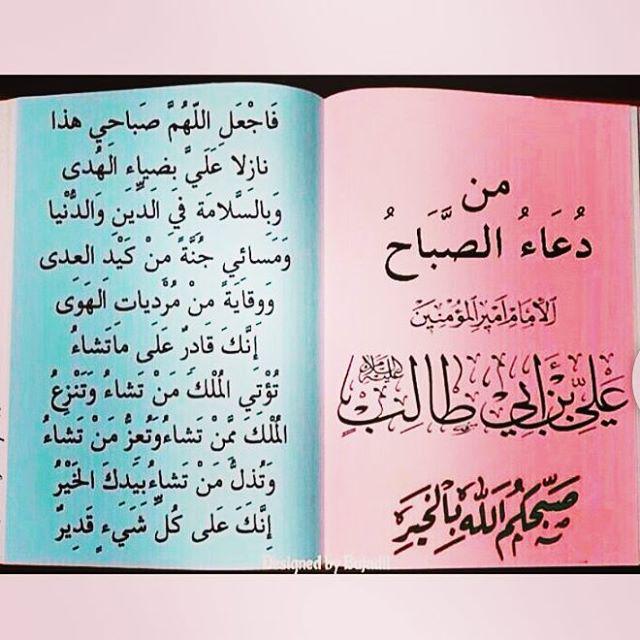 من
دُعَاءُ الصَّبَاحُ
الإمام أمير المؤمنين
عَلِيِّ بْنِ أَبِي طَالِبٍ عليه السلام
صبّحكم الله بالخير
فَاجْعَلِ اللّهُمَّ صَبَاحي هذا
نازِلا عَلَيَّ بِضِياءِ الهُدى
وَبِالسَّلامَةِ فِي الدِّينِ وَالدُّنْيا
وَمَسائي جُنَّةً مِنْ كَيْدِ العِدى
وَوِقايَةً مِنْ مُرْدِياتِ الهَوى
إِنَّكَ قادِرٌ عَلى ماتَشاءُ
تُؤْتِي المُلْكَ مَنْ تَشاءُ وَتَنْزِعُ
المُلْكَ مِمَّنْ تَشاءُ وَتُعِزُّ مَنْ تَشاءُ
وَتُذِلُّ مَنْ تَشاءُ بِيَدِكَ الخَيْرُ
إِنَّكَ عَلى كُلِّ شَيْءٍ قَدِيرٌ
Designed by